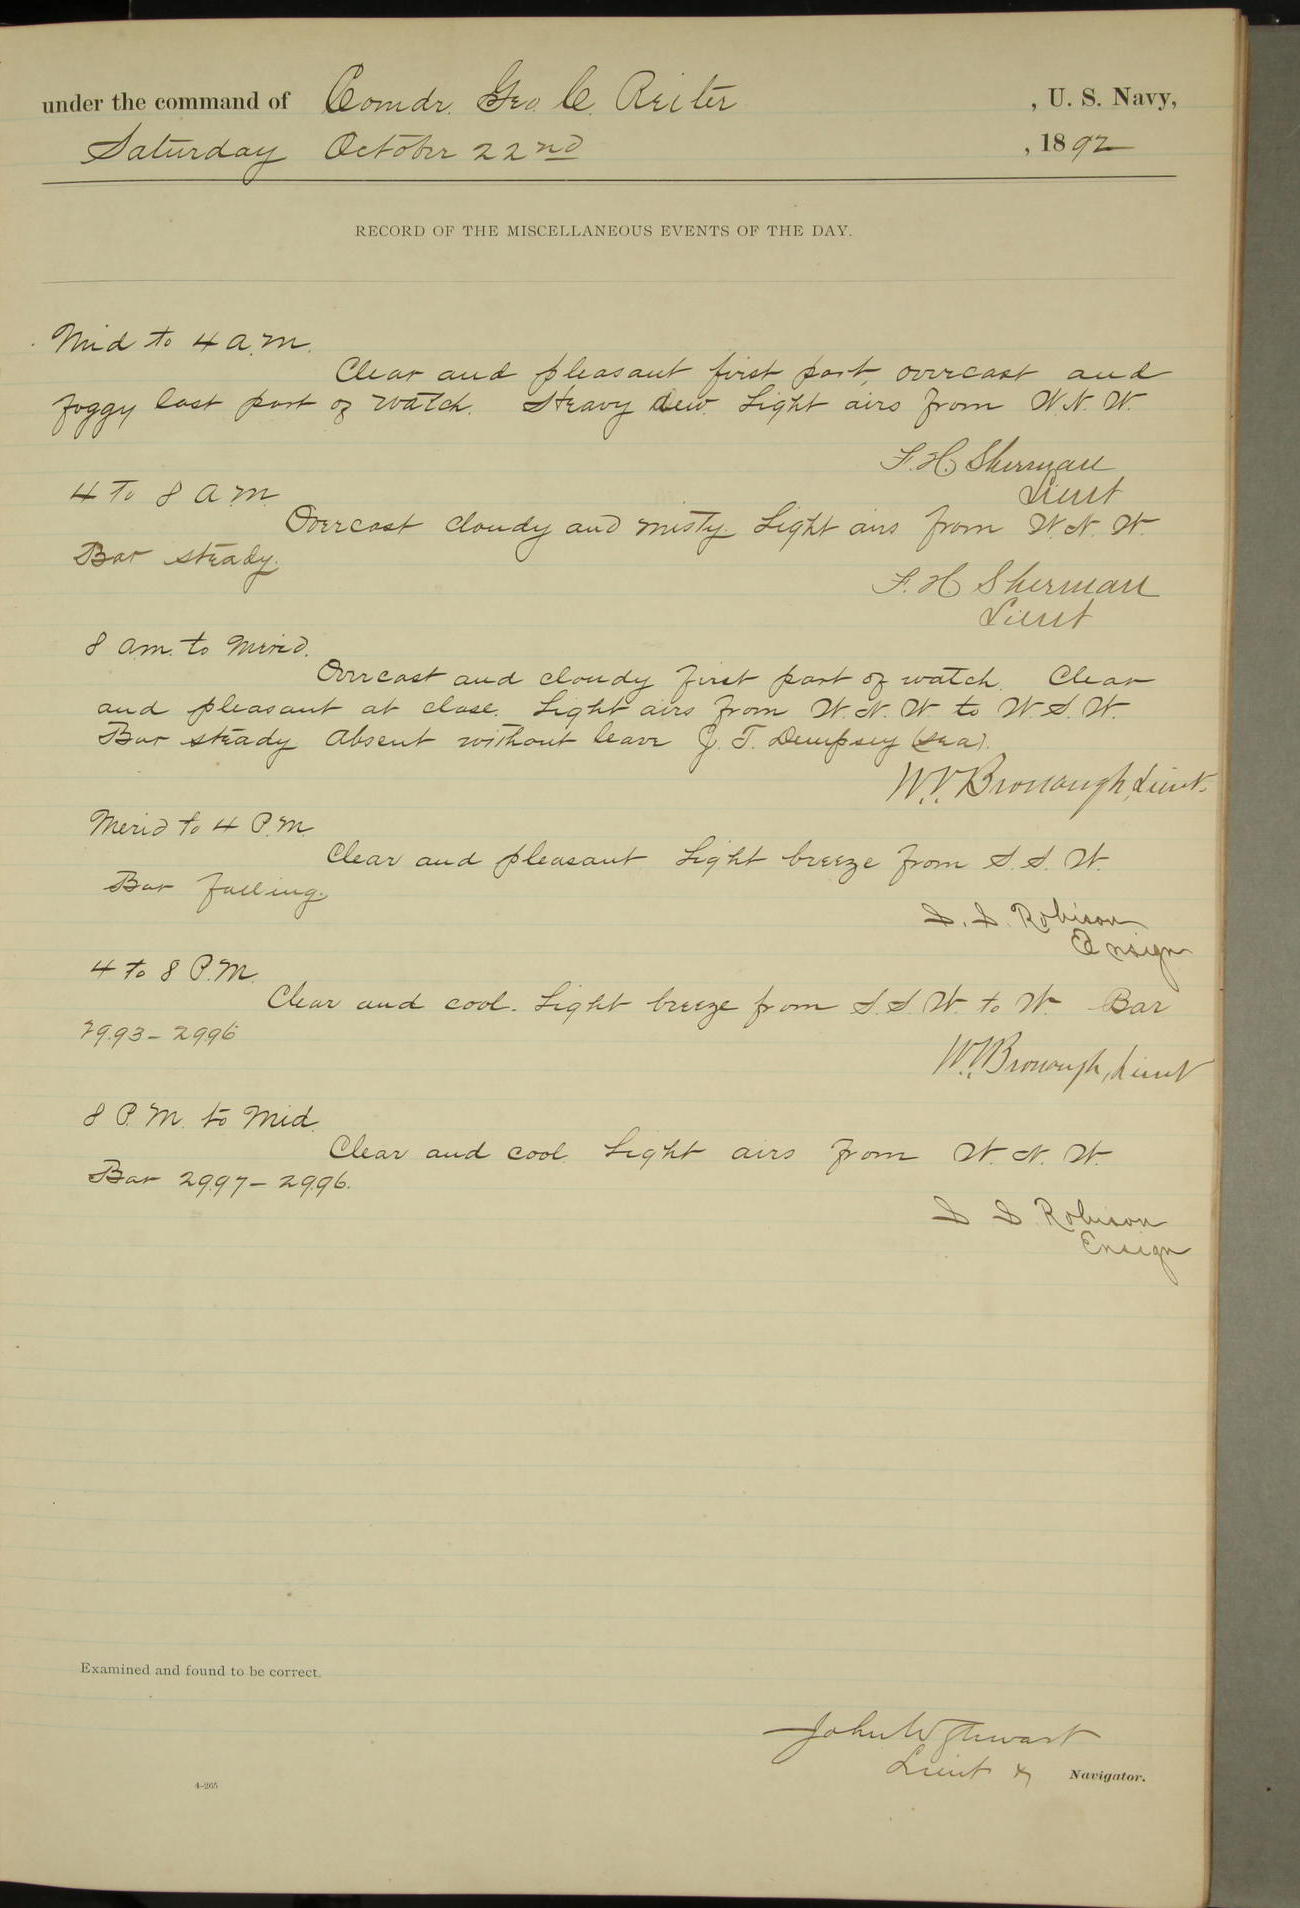 under the command of Comdr. Geo. C. Reiter , U. S. Navy,
Saturday October 22nd , 1892
RECORD OF THE MISCELLANEOUS EVENTS OF THE DAY.
Mid to 4 a.m.
Clear and pleasant first part, overcast and
foggy last part of watch. Heavy dew. Light airs from W.N.W.
F. H. Sherman
Lieut
4 to 8 A.M.
Overcast cloudy and misty. Light airs from W.N.W.
Bar steady.
F. H. Sherman
Lieut
8 am. to Merid.
Overcast and cloudy first part of watch. Clear
and pleasant at close. Light airs from W.N.W to W.S.W.
Bar steady Absent without leave J. T. Dempsey (sea).
W.V. Bronaugh, Lieut.
Merid to 4 P.M.
Clear and pleasant Light breeze from S.S.W.
Bar falling.
S. S. Robison
Ensign
4 to 8 P.M.
Clear and cool. Light breeze from S.S.W. to W. Bar
29.93 – 29.96
W.V. Bronaugh, Lieut
8 P.M. to Mid.
Clear and cool Light airs from W.N.W.
Bar 29.97 – 29.96.
S S Robison
Ensign
Examined and found to be correct.
John W Stewart
Lieut & Navigator.
4–265